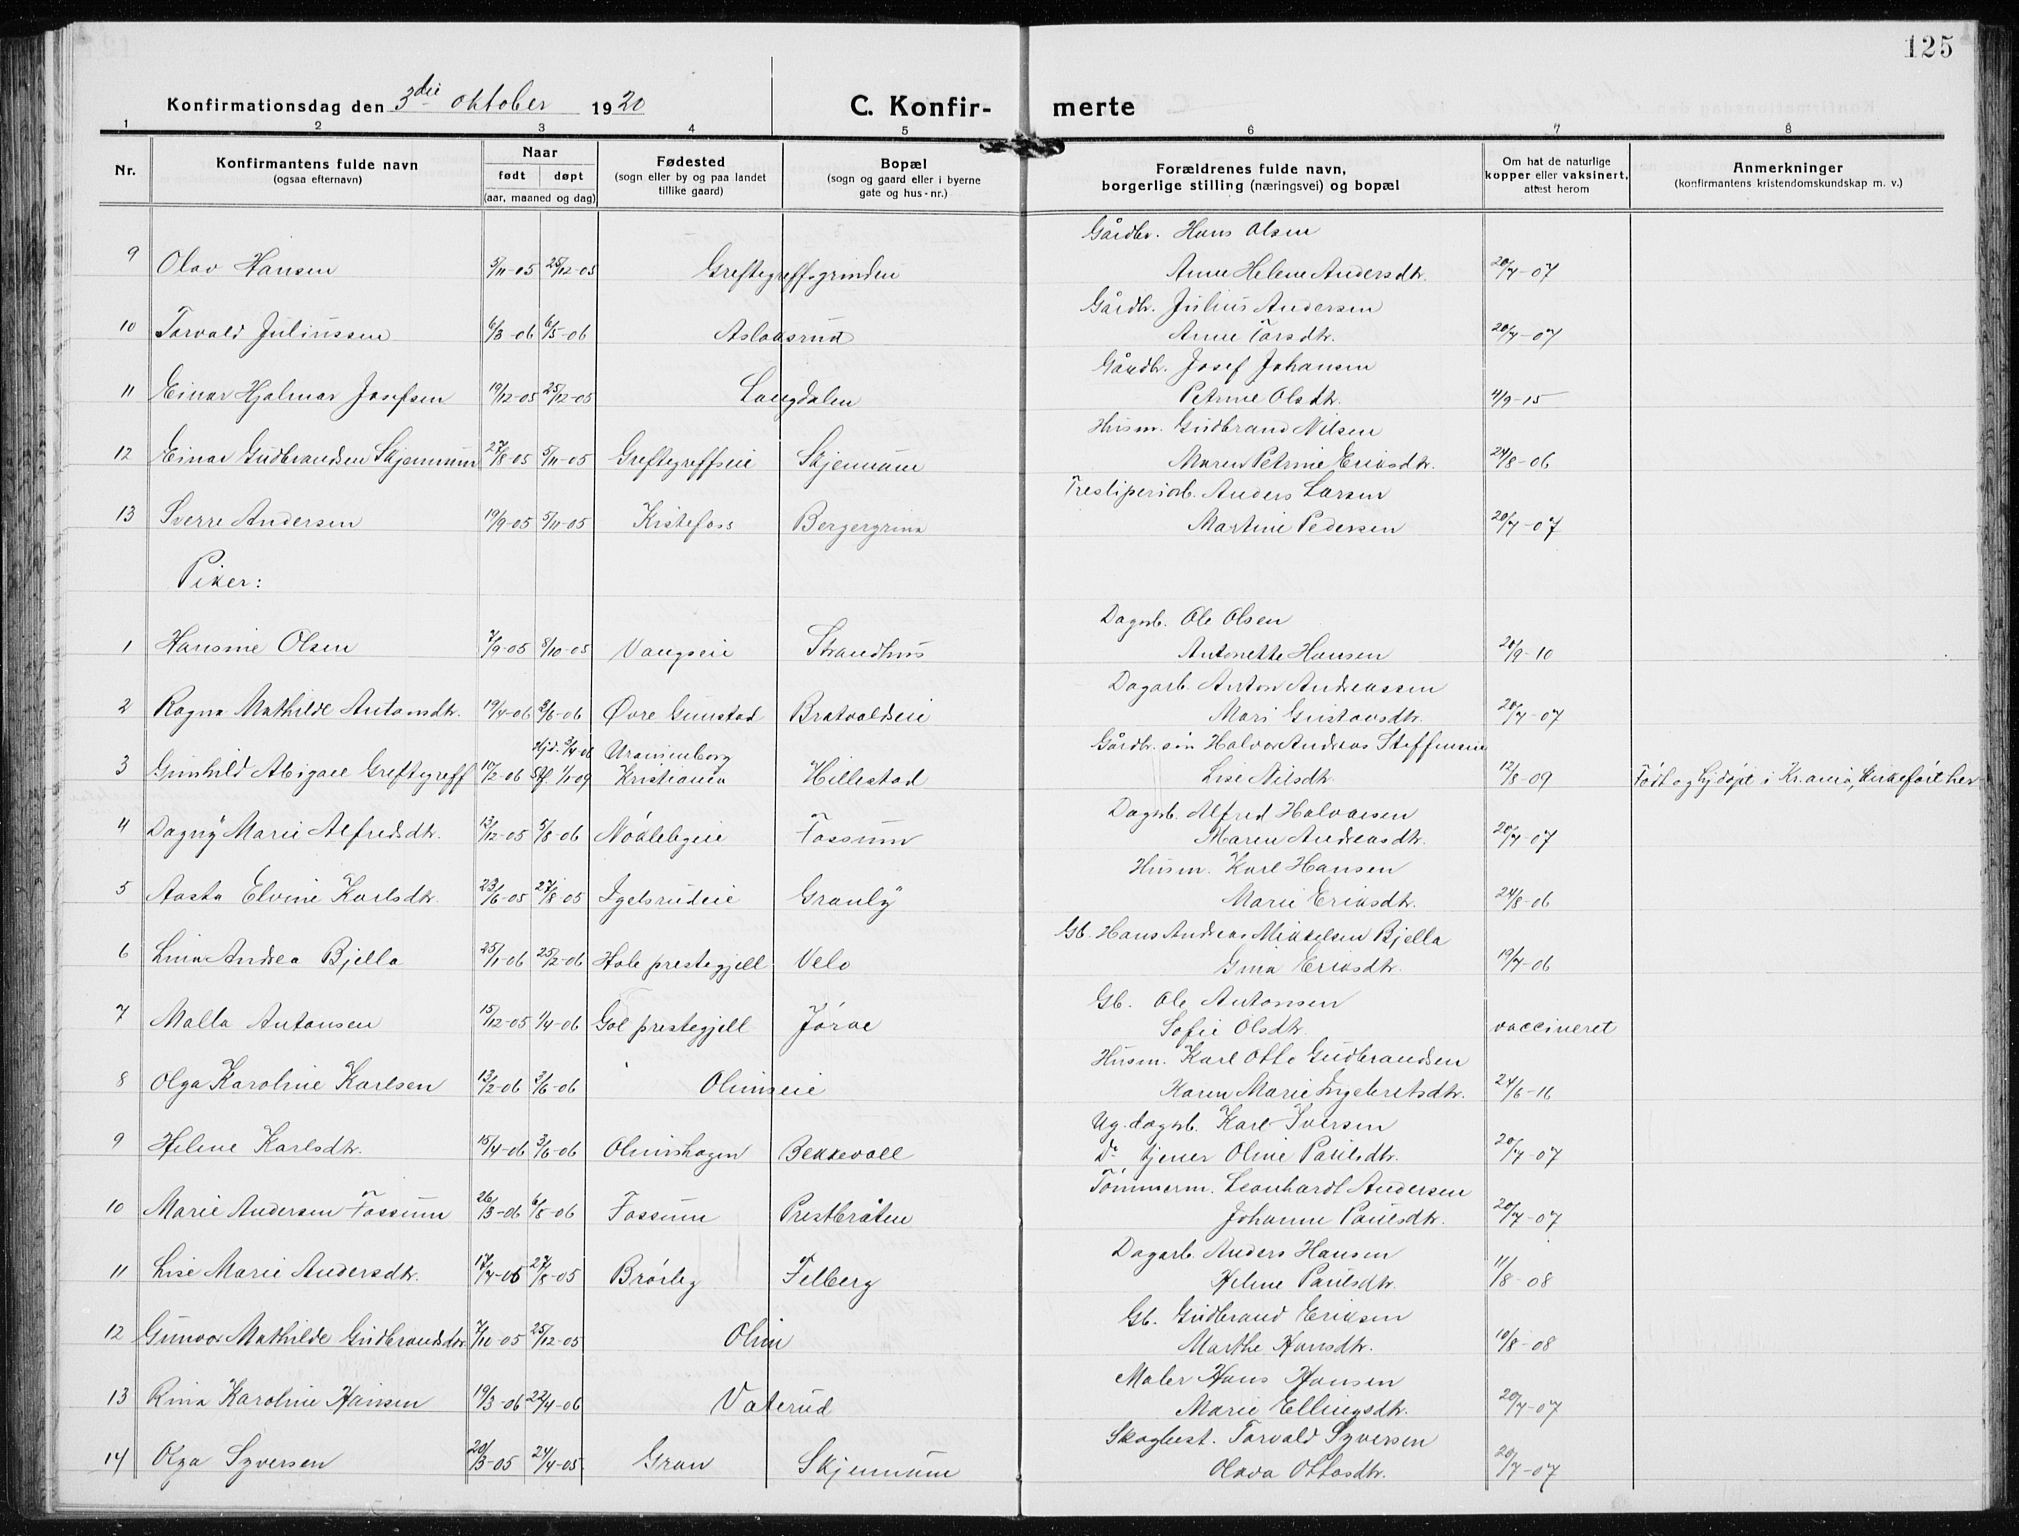 125
Konfirmationsdag den 3die oktober 1920 C. Konfir- merte
1 2 3 4 5 6 7 8
Nr. Konfirmantens fulde navn (ogsaa efternavn) Naar født døpt (aar, maaned og dag) Fødested (sogn eller by og paa landet tillike gaard) Bopæl (sogn og gaard eller i byerne gate og hus-nr.) Forældrenes fulde navn, borgerlige stilling (næringsvei) og bopæl Om hat de naturlige kopper eller vaksinert, attest herom Anmerkninger (konfirmantens kristendomskundskap m. v.)
Gårdbr. Hans Olsen
9 Olav Hansen 5/11-05 25/12-05 Greftegreffsgrinden Anne Helene Andersdtr. 20/7-07
Gårdbr. Julius Andersen
10 Torvald Juliussen 6/3-06 6/5-06 Aslaksrud Anne Larsdtr. 20/7-07
Gårdbr. Josef Johansen
11 Einar Hjalmar Josefsen 19/12-05 25/12-05 Langdalen Petrine Olsdtr. 4/9-15
Husm. Gudbrand Nilsen
12 Einar Gudbrandsen Skjennum 27/8-05 5/11-05 Greftegreffseie Skjennum Maren Petrine Eriksdtr. 24/8-06
Anders Larsen
13 Sverre Andersen 19/9-05 5/11-05 Kistefoss Bergergrina Martine Pedersen 20/7-07
Piker:
Dagarb. Ole Olsen
1 Hansine Olsen 7/9-05 8/10-05 Vangseie Strandhus Antonette Hansen 20/9-10
Dagarb. Anton Andreassen
2 Ragna Mathilde Antonsdtr. 19/4-06 3/6-06 Øvre Gunstad Bratvoldseie Mari Gustavsdtr. 20/7-07
Hjd. 3/4-06 Uranienborg Gårdbr. søn Halvor Andreas Steffensen
3 Gunhild Abigael Greftegreff 10/2-06 Stf. 1/1-09 Kristiania Hillestad Lise Nilsdtr. 12/8-09 Født og hjdøpt i Kr.ania, kirkeført her
Dagarb. Alfred Halvorsen
4 Dagny Marie Alfredsdtr. 13/12-05 5/8-06 Nøklebyeie Fossum Maren Andreasdtr. 20/7-07
Husm. Karl Hansen
5 Aasta Elvine Karlsdtr. 23/6-05 27/8-05 Igelsrudeie Granly Marie Eriksdtr. 24/8-06
Gb. Hans Andreas Mikkelsen Bjella
6 Lina Andrea Bjella 25/1-06 25/2-06 Hole prestegjell Velo Gina Eriksdtr. 19/7-06
Gb. Ole Antonsen
7 Malla Antonsen 15/12-05 1/4-06 Gol prestegjell Jørae Sofie Olsdtr. vaccineret
Husm. Karl Otto Gudbrandsen
8 Olga Karoline Karlsen 13/2-06 3/6-06 Olimseie Karen Marie Ingebretsdtr. 24/6-16
Ug. dagarb. Karl Iversen
9 Helene Karlsdtr. 15/4-06 3/6-06 Olimshagen Bekkevoll Do tjener Oline Paulsdtr. 20/7-07
Tømmerm. Leonhardt Andersen
10 Marie Andersen Fossum 26/3-06 6/8-06 Fossum Prestbråten Johanne Paulsdtr. 20/7-07
Dagarb. Anders Hansen
11 Lise Marie Andersdtr. 17/7-05 27/8-05 Brørby Felberg Helene Paulsdtr. 11/8-08
Gb. Gudbrand Eriksen
12 Gunvor Mathilde Gudbrandsdtr. 7/10-05 25/12-05 Olim Marthe Hansdtr. 10/8-08
Maler Hans Hansen
13 Rina Karoline Hansen 19/3-06 22/4-06 Vaterud Marie Ellingsdtr. 20/7-07
Skogbest. Torvald Syversen
14 Olga Syversen 20/3-05 24/4-05 Gran Skjennum Olava Ottosdtr. 20/7-07